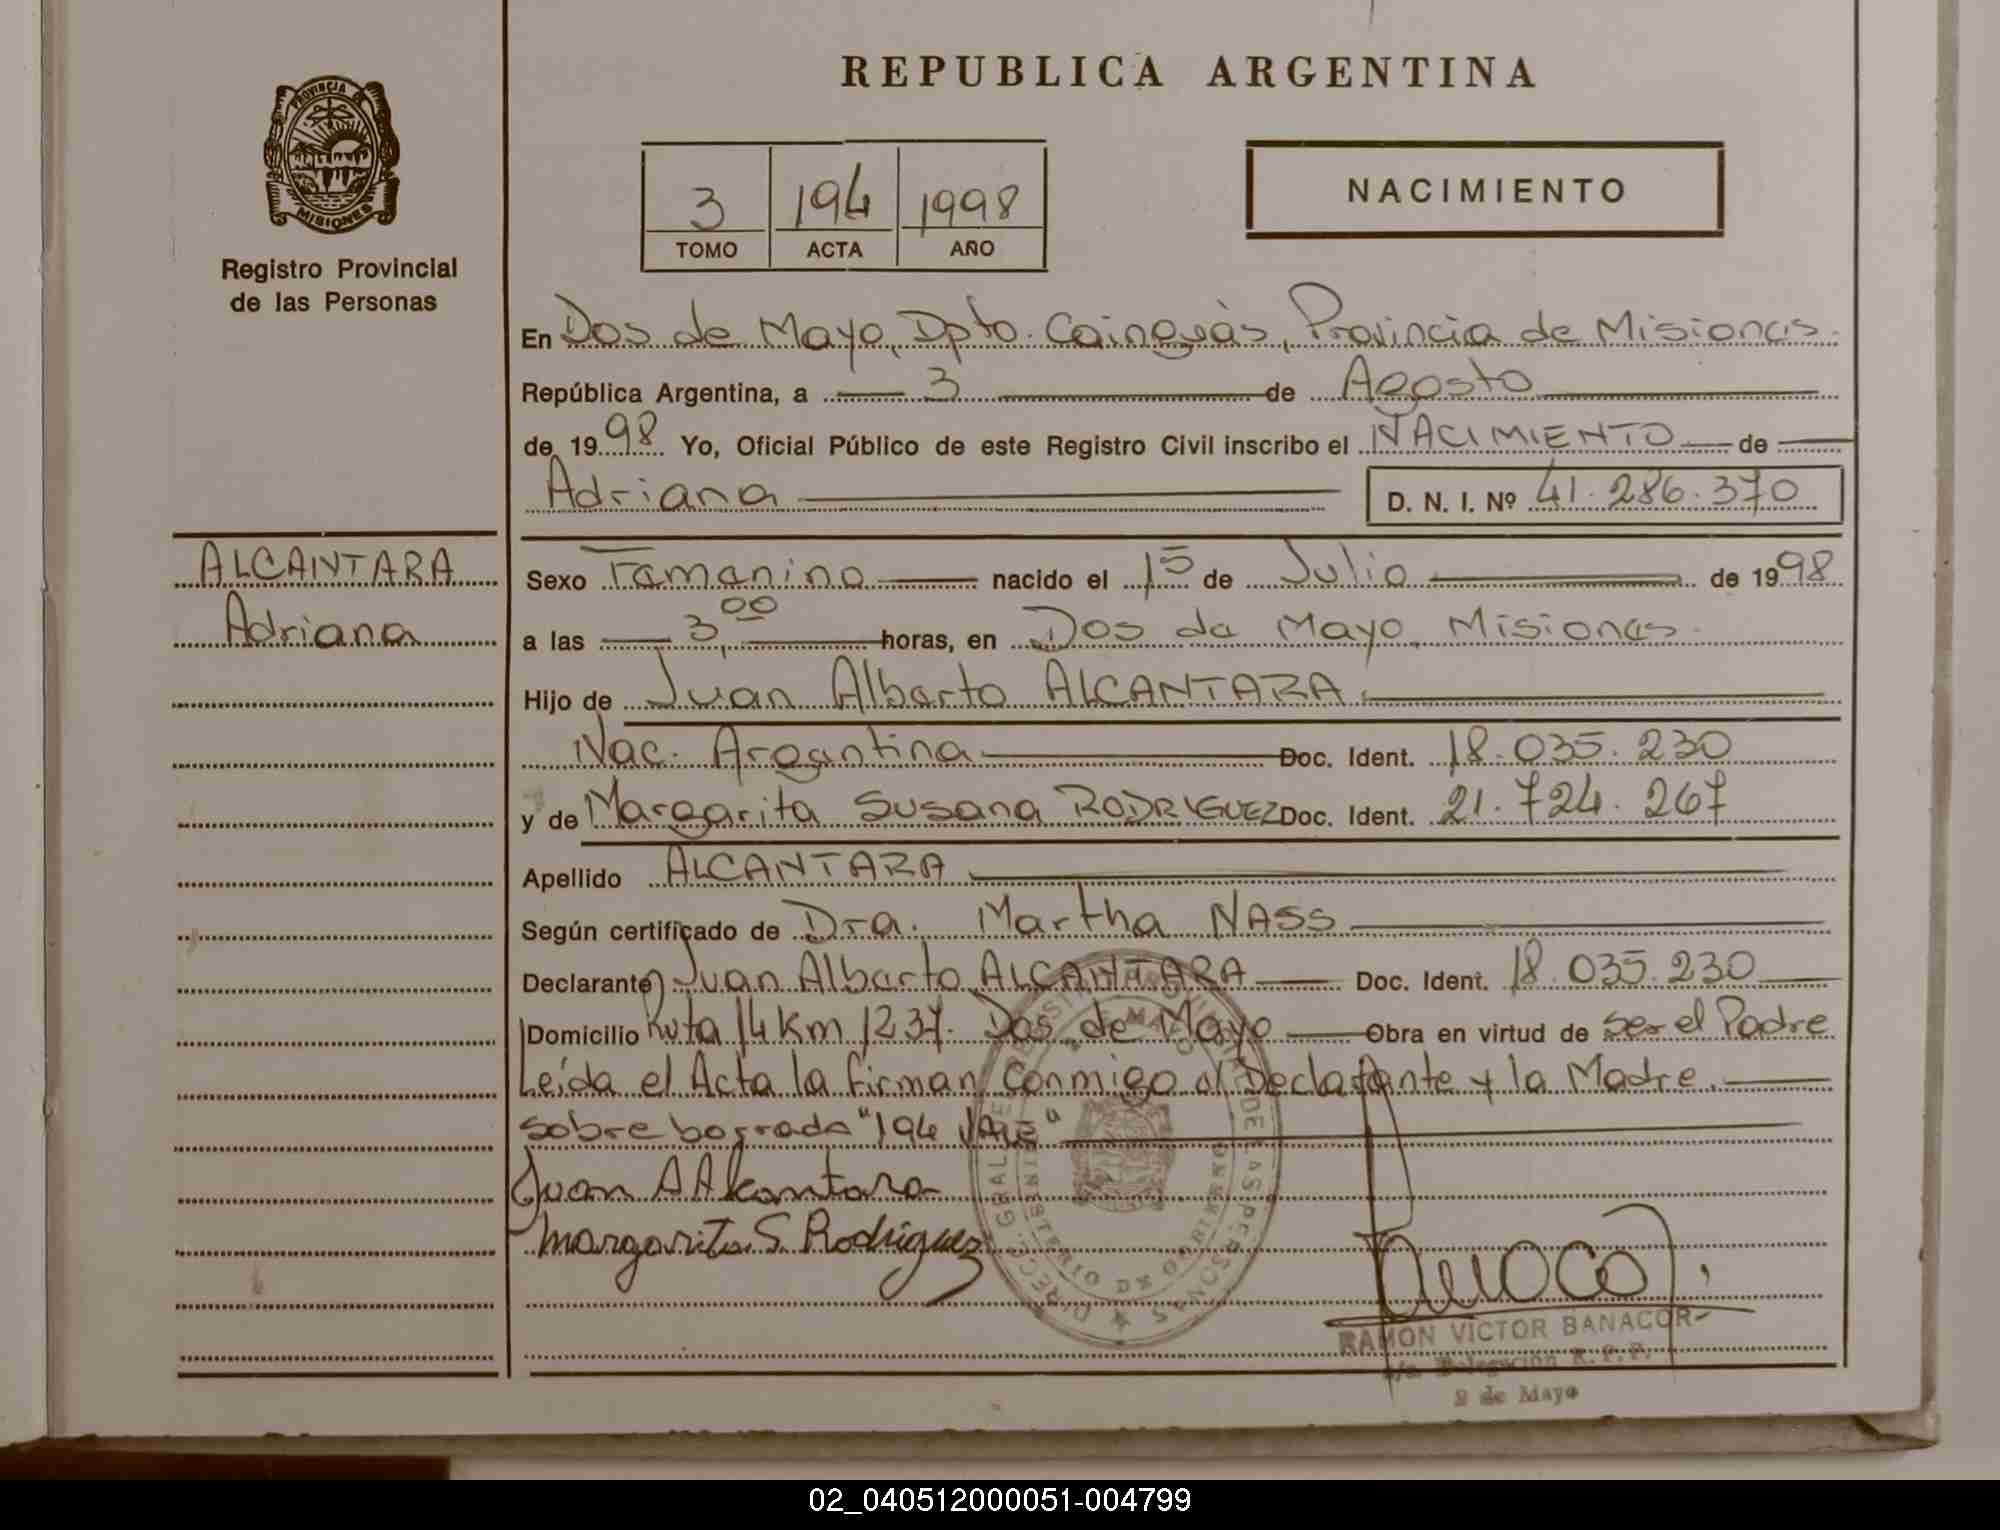 REPUBLICA ARGENTINA
PROVINCIA DE
MISIONES
Registro Provincial
de las Personas
3 194 1998
TOMO ACTA AÑO
NACIMIENTO
En Dos de Mayo, Dpto. Cainguàs, Provincia de Misiones.
República Argentina, a 3 de Agosto
de 1998 Yo, Oficial Público de este Registro Civil inscribo el NACIMIENTO de
Adriana D. N. I. Nº 41.286.370
ALCANTARA
Adriana
Sexo Femenino nacido el 15 de Julio de 1998
a las 3,00 horas, en Dos de Mayo, Misiones.
Hijo de Juan Alberto ALCANTARA.
Nac. Argentina Doc. Ident. 18.035.230
y de Margarita Susana RODRIGUEZ Doc. Ident. 21.724.267
Apellido ALCANTARA
Según certificado de Dra. Martha NASS
Declarante Juan Alberto ALCANTARA Doc. Ident. 18.035.230
Domicilio Ruta 14 Km 1237. Dos de Mayo Obra en virtud de ser el Padre
Leída el Acta la firman conmigo el Declarante y la Madre.
sobre borrado "194
Juan A Alcantara
Margarita S. Rodriguez
MINISTERIO DE GOBIERNO
RAMON VICTOR BANACOR
Delegación R. P. P.
2 de Mayo
02_040512000051-004799